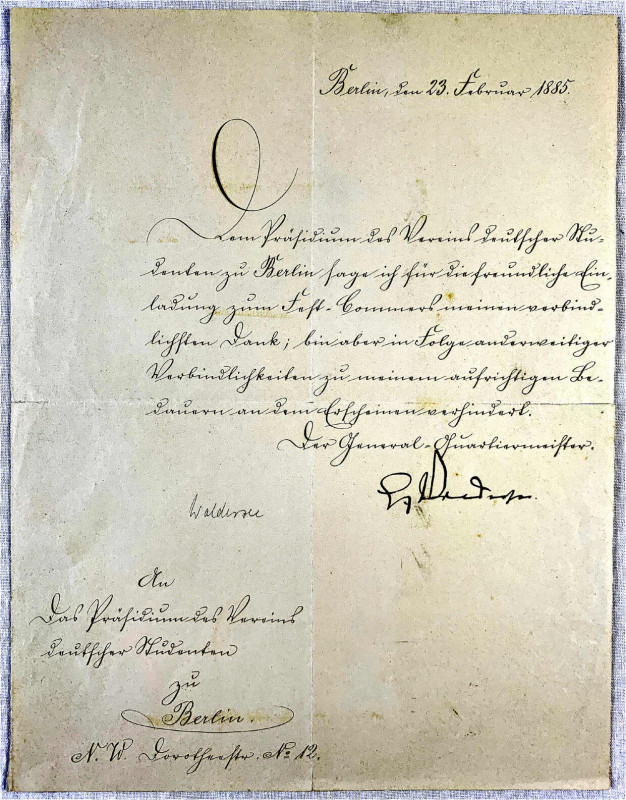 Berlin, den 23. Februar 1885.
Dem Präsidium des Vereins deutscher Stu-
denten zu Berlin sage ich für die freundliche Ein-
ladung zum Fest-Commers meinen verbind-
lichsten Dank; bin aber in Folge anderweitiger
Verbindlichkeiten zu meinem aufrichtigen Be-
dauern an dem Erscheinen verhindert.
Der General-Quartiermeister.
Waldersee
An
Das Präsidium des Vereins
deutscher Studenten
zu
Berlin
N. W. Dorotheestr. No 12.